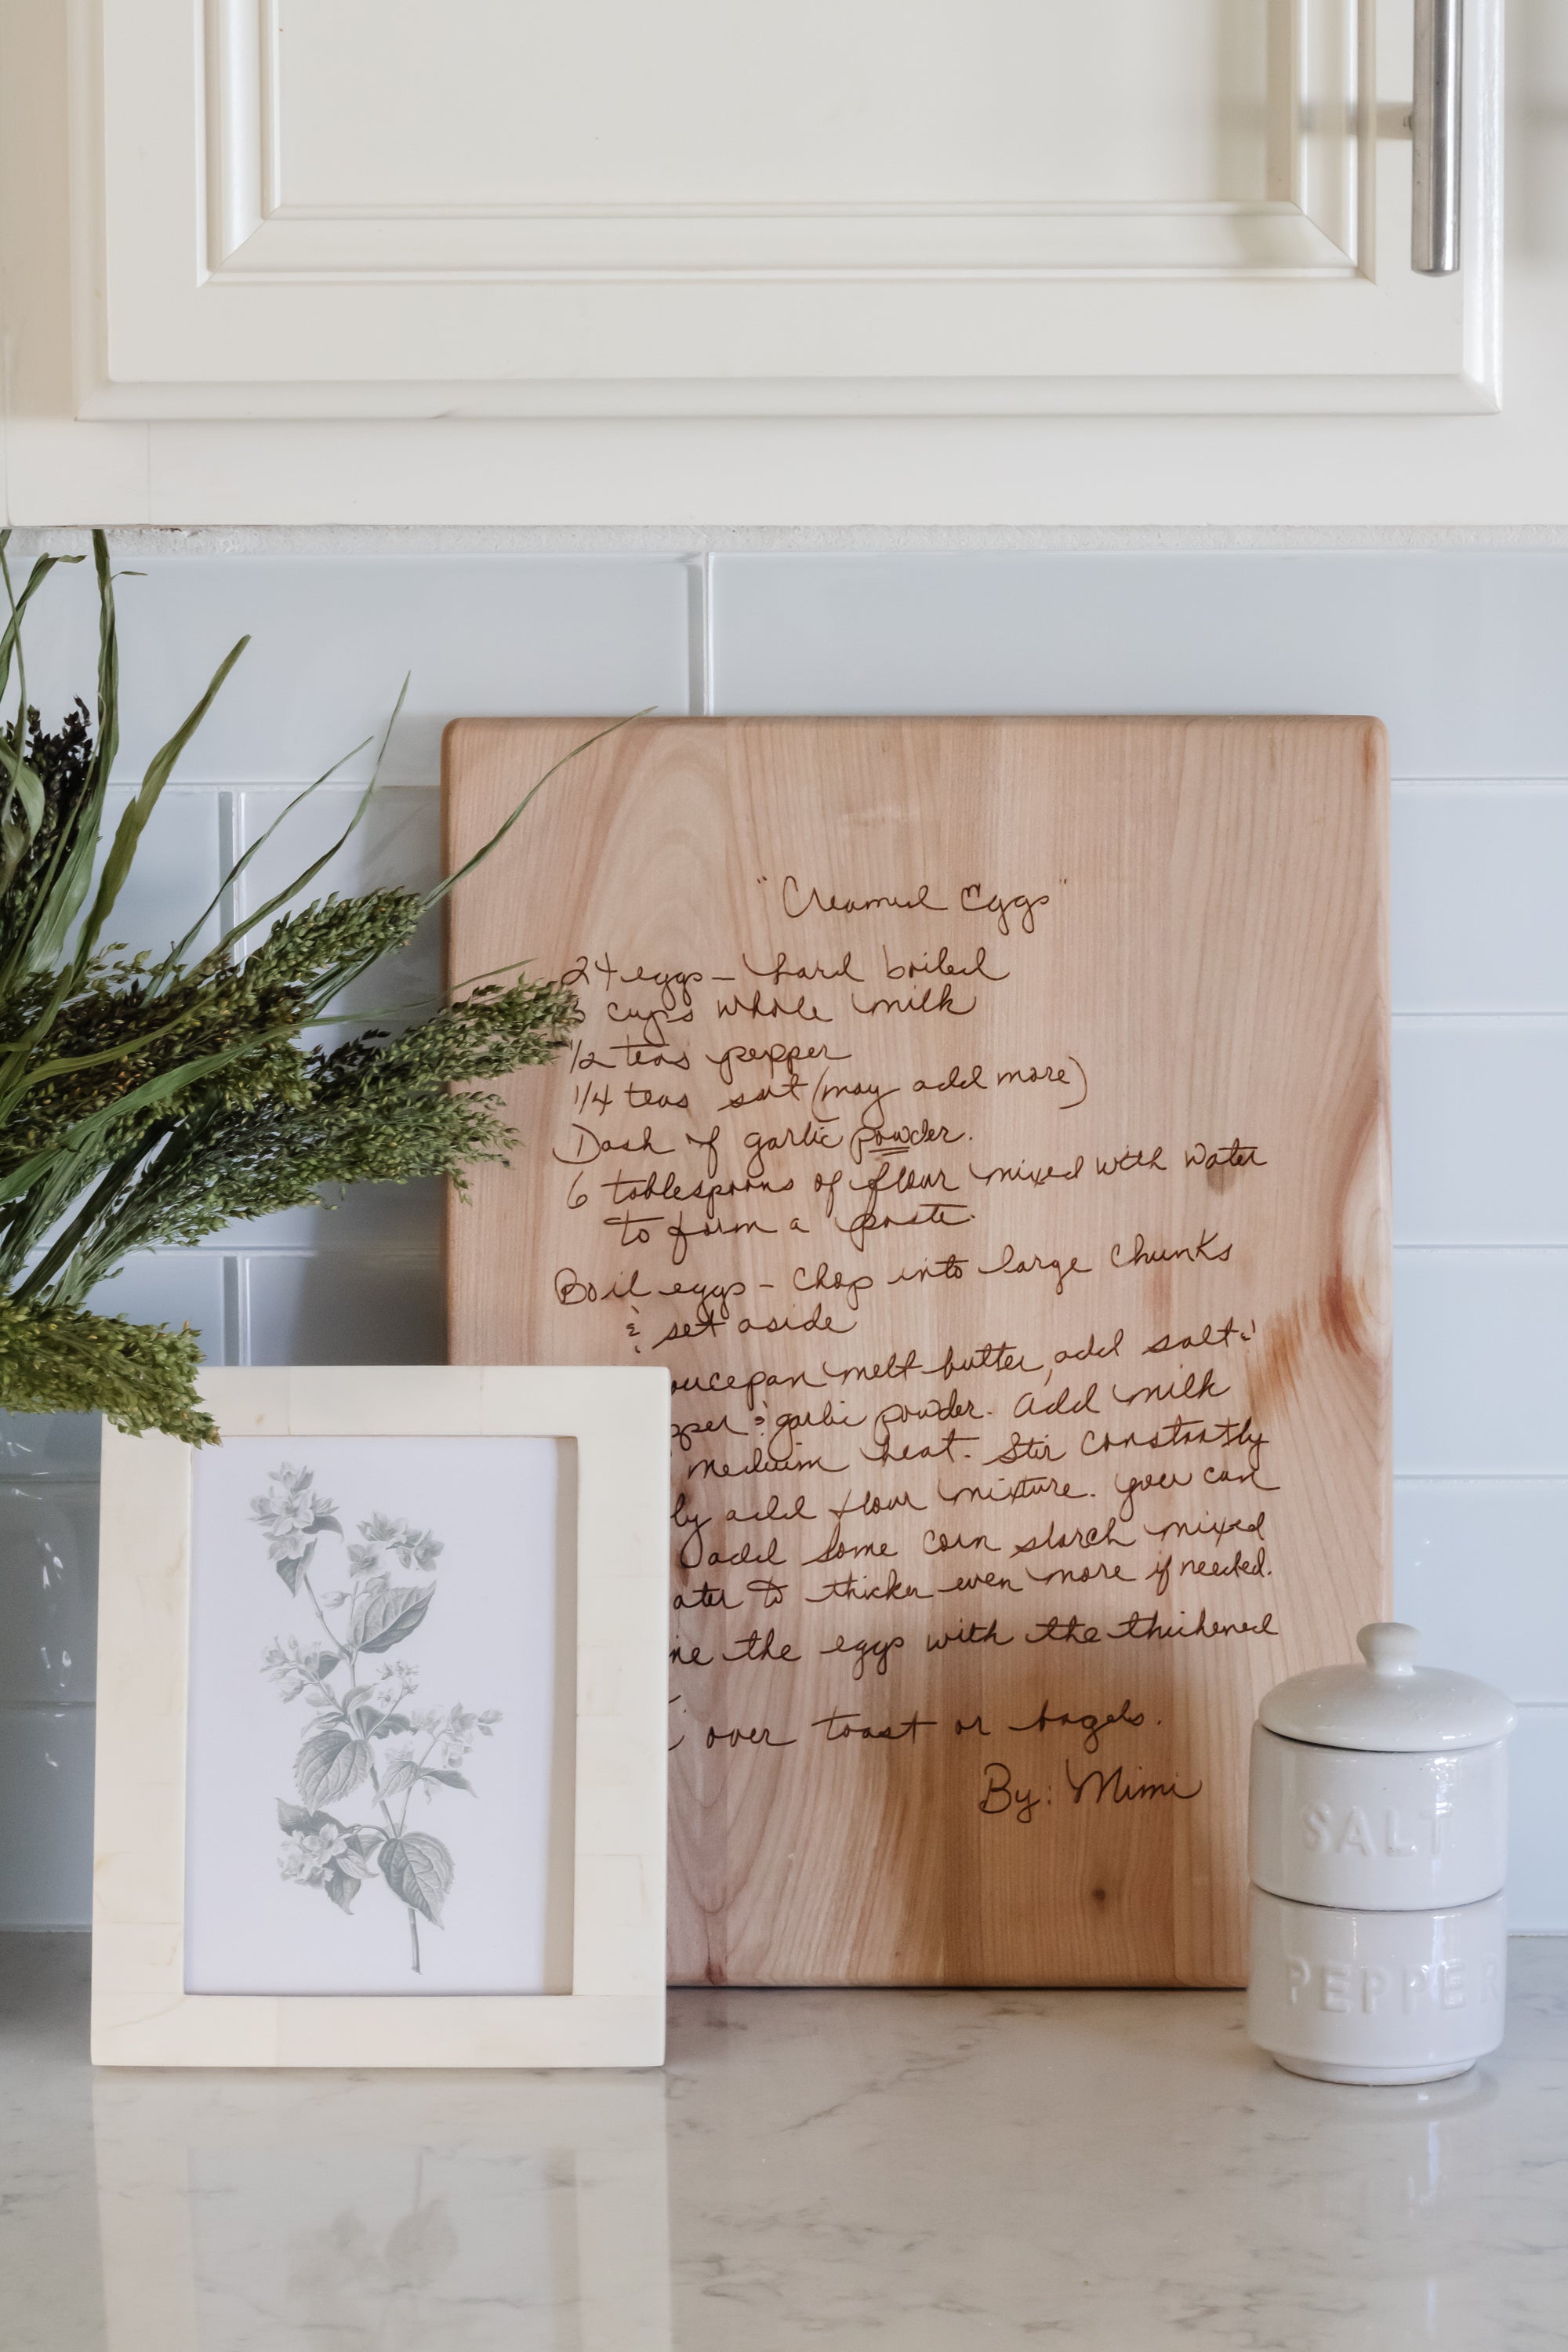 "Creamed Eggs"
24 eggs - hard boiled
3 cups whole milk
1/2 teas pepper
1/4 teas salt (may add more)
Dash of garlic powder.
6 tablespoons of flour mixed with water
to form a paste.
Boil eggs - chop into large chunks
& set aside
aucepan melt butter, add salt &
pper & garlic powder. Add milk
medium heat. Stir constantly
ly add flour mixture. You can
add some corn starch mixed
ater to thicken even more if needed.
ne the eggs with the thickened
over toast or bagels.
By: Mimi
SALT
PEPPER